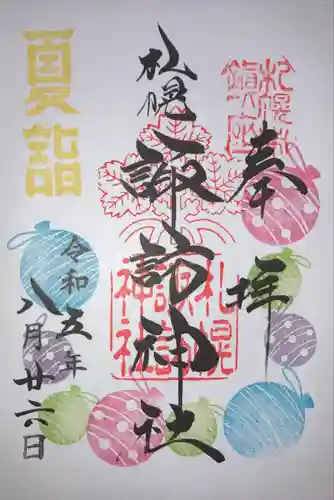 奉拝
札幌諏訪神社
夏詣
令和五年
八月廿六日
札幌諏訪神社